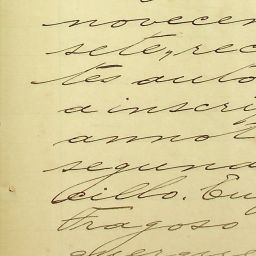 novecen
sete, rec
tes auto
a inscri
annot
segund
cillo. Eu
Fragoso